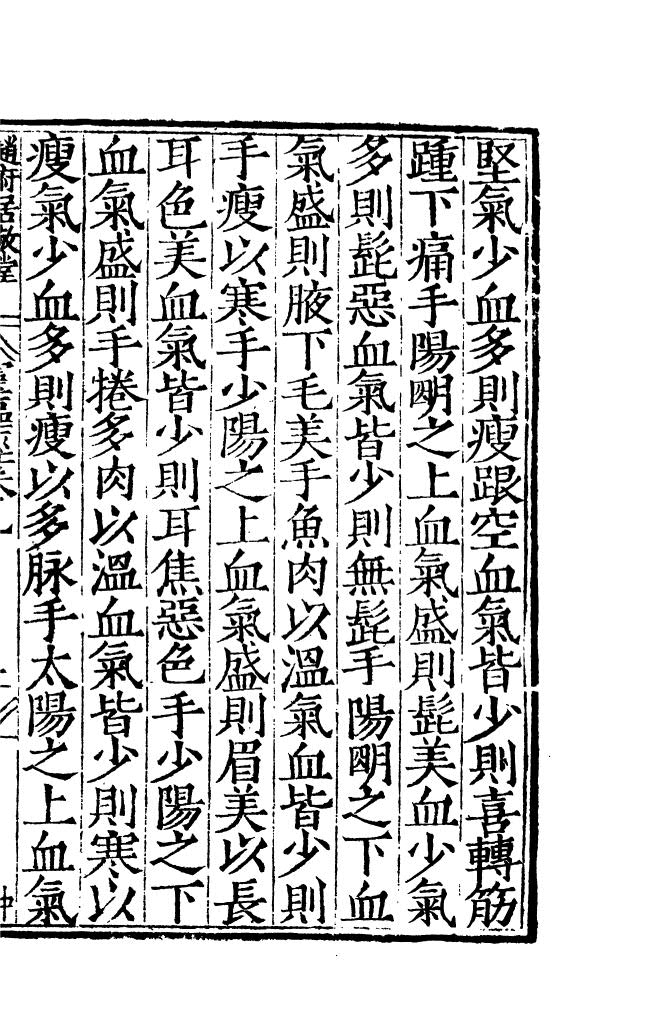 堅氣少血多則瘦跟空血氣皆少則喜轉筋
踵下痛手陽明之上血氣盛則髭美血少氣
多則髭惡血氣皆少則無髭手陽明之下血
氣盛則腋下毛美手魚肉以溫氣血皆少則
手瘦以寒手少陽之上血氣盛則眉美以長
耳色美血氣皆少則耳焦惡色手少陽之下
血氣盛則手捲多肉以溫血氣皆少則寒以
瘦氣少血多則瘦以多脉手太陽之上血氣
趙府居敬堂